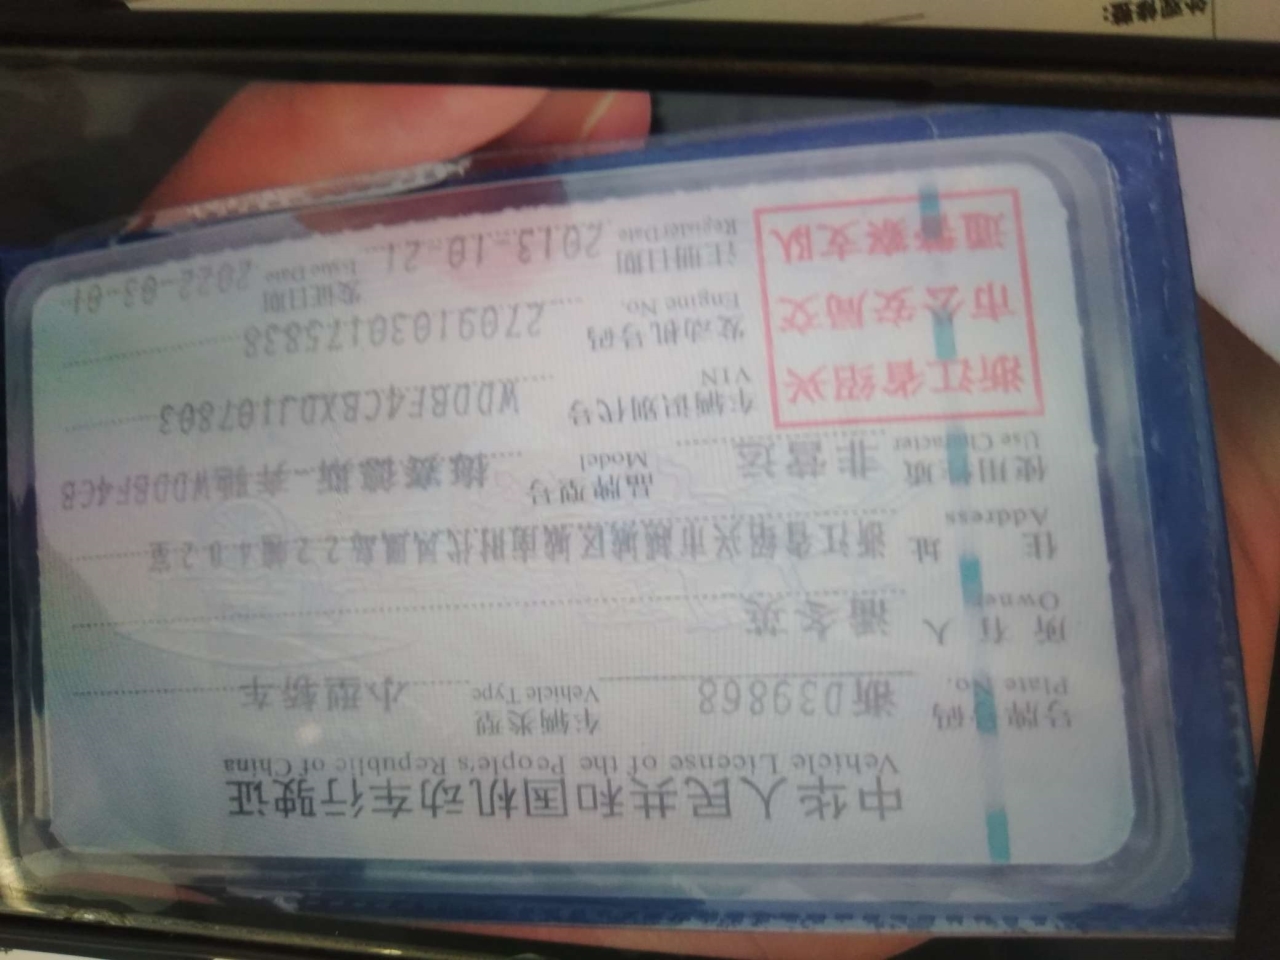 中华人民共和国机动车行驶证
Vehicle License of the People's Republic of China
号牌号码 Plate No. 浙D39868 车辆类型 Vehicle Type 小型轿车
所有人 Owner 潘冬英
住址 Address 浙江省绍兴市越城区城南时代凤凰岛22幢402室
使用性质 Use Character 非营运 品牌型号 Model 梅赛德斯-奔驰WDDBF4CB
浙江省绍兴
市公安局交
通警察支队
车辆识别代号 VIN WDDBF4CBXDJ107803
发动机号码 Engine No. 27091030175838
注册日期 Register Date 2013-10-21 发证日期 Issue Date 2022-03-01
外观修整: